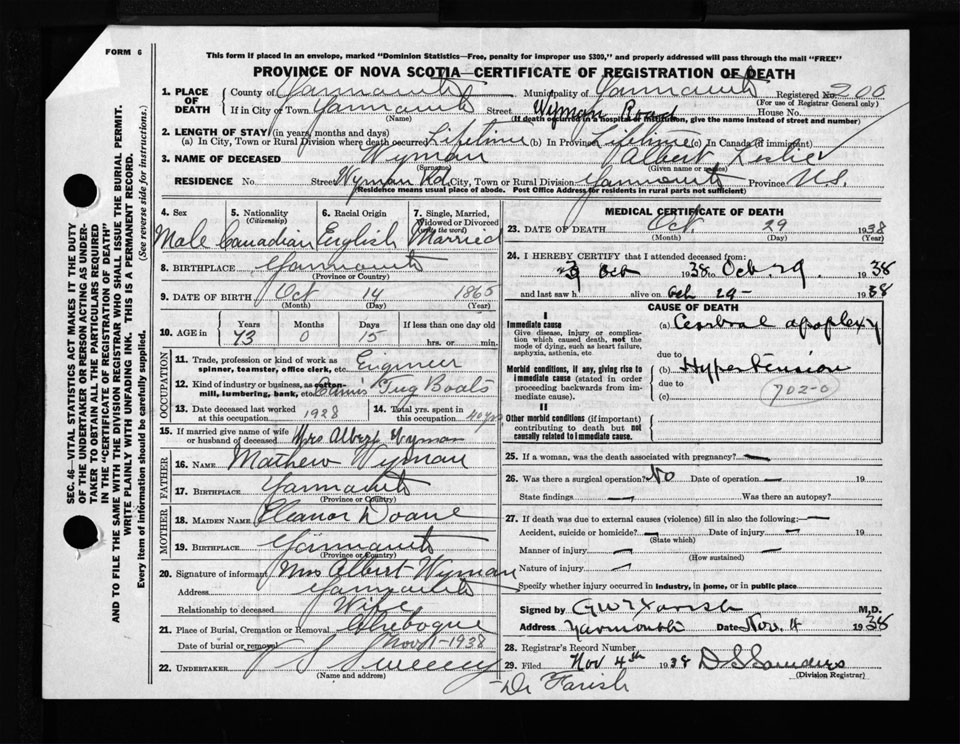 FORM 6
This form if placed in an envelope, marked "Dominion Statistics—Free, penalty for improper use $300," and properly addressed will pass through the mail "FREE"
PROVINCE OF NOVA SCOTIA—CERTIFICATE OF REGISTRATION OF DEATH
1. PLACE OF DEATH
County of Yarmouth Municipality of Yarmouth Registered No. 200
(For use of Registrar General only)
If in City or Town Yarmouth Street Wyman Road House No.
(Name) (If death occurred in a hospital or institution, give the name instead of street and number)
2. LENGTH OF STAY (in years, months and days)
(a) In City, Town or Rural Division where death occurred Lifetime (b) In Province Lifetime (c) In Canada (if immigrant)
3. NAME OF DECEASED Wyman Albert Leslie
(Surname) (Given name or names)
RESIDENCE No. Street Wyman Rd. City, Town or Rural Division Yarmouth Province N.S.
(Residence means usual place of abode. Post Office Address for residents in rural parts not sufficient)
4. Sex 5. Nationality 6. Racial Origin 7. Single, Married, Widowed or Divorced
(Citizenship) (write the word)
Male Canadian English Married
8. BIRTHPLACE Yarmouth
(Province or Country)
9. DATE OF BIRTH Oct 14 1865
(Month) (Day) (Year)
10. AGE in Years Months Days If less than one day
73 0 15 hrs. or min.
11. Trade, profession or kind of work as spinner, teamster, office clerk, etc. Engineer
12. Kind of industry or business, as cotton-mill, lumbering, bank, etc. Tug Boats
13. Date deceased last worked at this occupation 1928
14. Total yrs. spent in this occupation 40 yrs
15. If married give name of wife or husband of deceased Mrs Albert Wyman
FATHER
16. NAME Mathew Wyman
17. BIRTHPLACE Yarmouth
(Province or Country)
MOTHER
18. MAIDEN NAME Eleanor Doane
19. BIRTHPLACE Yarmouth
(Province or Country)
20. Signature of informant Mrs Albert Wyman
Address Yarmouth
Relationship to deceased Wife
21. Place of Burial, Cremation or Removal Chebogue
Date of burial or removal Nov 1-1938
22. UNDERTAKER S Sweeney
(Name and address)
MEDICAL CERTIFICATE OF DEATH
23. DATE OF DEATH Oct. 29 1938
(Month) (Day) (Year)
24. I HEREBY CERTIFY that I attended deceased from:
Oct 1938 Oct 29. 1938
and last saw h alive on Oct 29- 1938
CAUSE OF DEATH
I
Immediate cause
Give disease, injury or complication which caused death, not the mode of dying, such as heart failure, asphyxia, asthenia, etc
(a) Cerebral apoplexy
due to
Morbid conditions, if any, giving rise to immediate cause (stated in order proceeding backwards from immediate cause).
(b) Hypertension
due to
(c) 702-0
II
Other morbid conditions (if important) contributing to death but not causally related to immediate cause.
25. If a woman, was the death associated with pregnancy? —
26. Was there a surgical operation? No Date of operation — 19
State findings — Was there an autopsy?
27. If death was due to external causes (violence) fill in also the following:—
Accident, suicide or homicide? — Date of injury — 19
(State which)
Manner of injury — —
(How sustained)
Nature of injury —
Specify whether injury occurred in industry, in home, or in public place
Signed by G W T Farish M.D.
Address Yarmouth Date Nov. 4 1938
28. Registrar's Record Number
29. Filed Nov 4th 1938 D S Saunders
(Division Registrar)
Dr Farish
SEC. 46—VITAL STATISTICS ACT MAKES IT THE DUTY
OF THE UNDERTAKER OR PERSON ACTING AS UNDER-
TAKER TO OBTAIN ALL THE PARTICULARS REQUIRED
IN THE "CERTIFICATE OF REGISTRATION OF DEATH"
AND TO FILE THE SAME WITH THE DIVISION REGISTRAR WHO SHALL ISSUE THE BURIAL PERMIT.
WRITE PLAINLY WITH UNFADING INK. THIS IS A PERMANENT RECORD.
Every item of information should be carefully supplied. (See reverse side for instructions.)